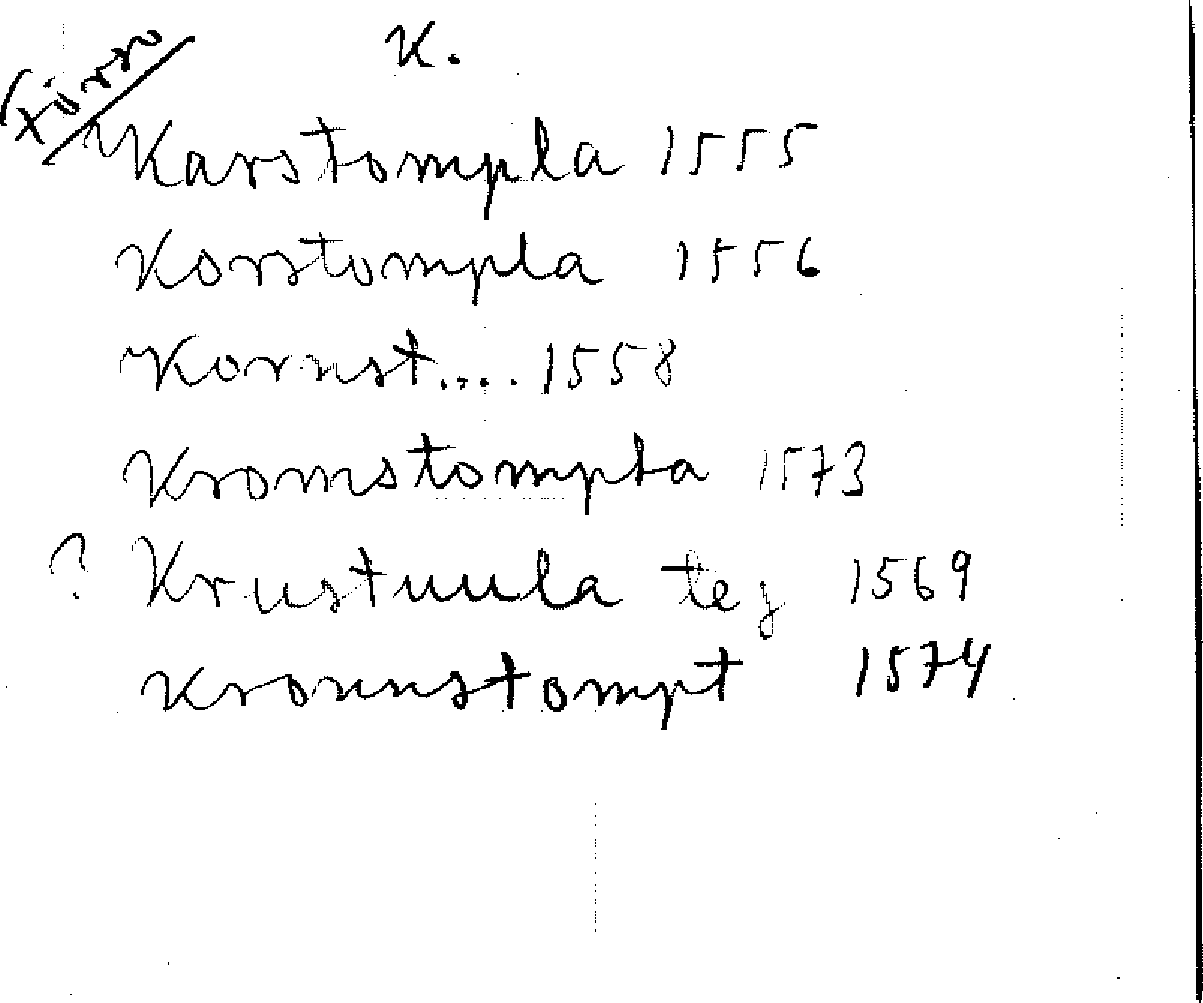 K.
Karstompla 1555
Korstompla 1556
Kornst.... 1558
Kromstompta 1573
? Krustuula tej 1569
Kronnstompt 1574